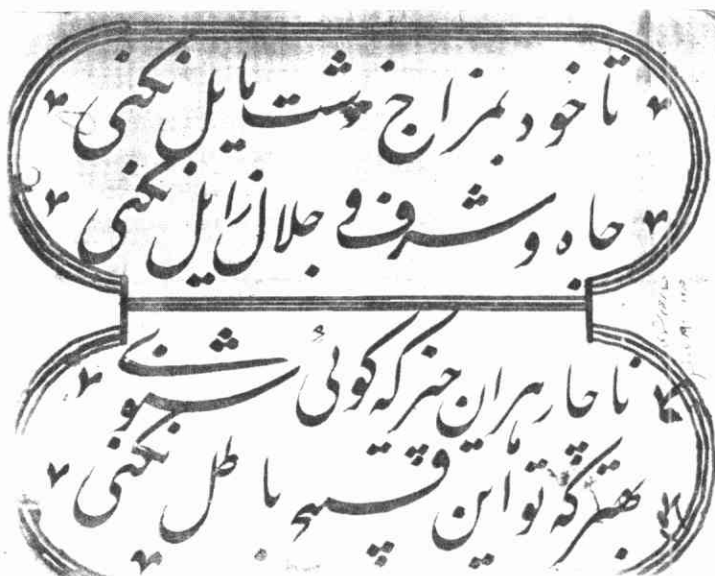 تا خود بمزاج خشت مایل نکنی
جاه و شرف و جلال زایل نکنی
ناچار هران چیز که گوئی شنوی
بهتر که تو این قسمه باطل نکنی